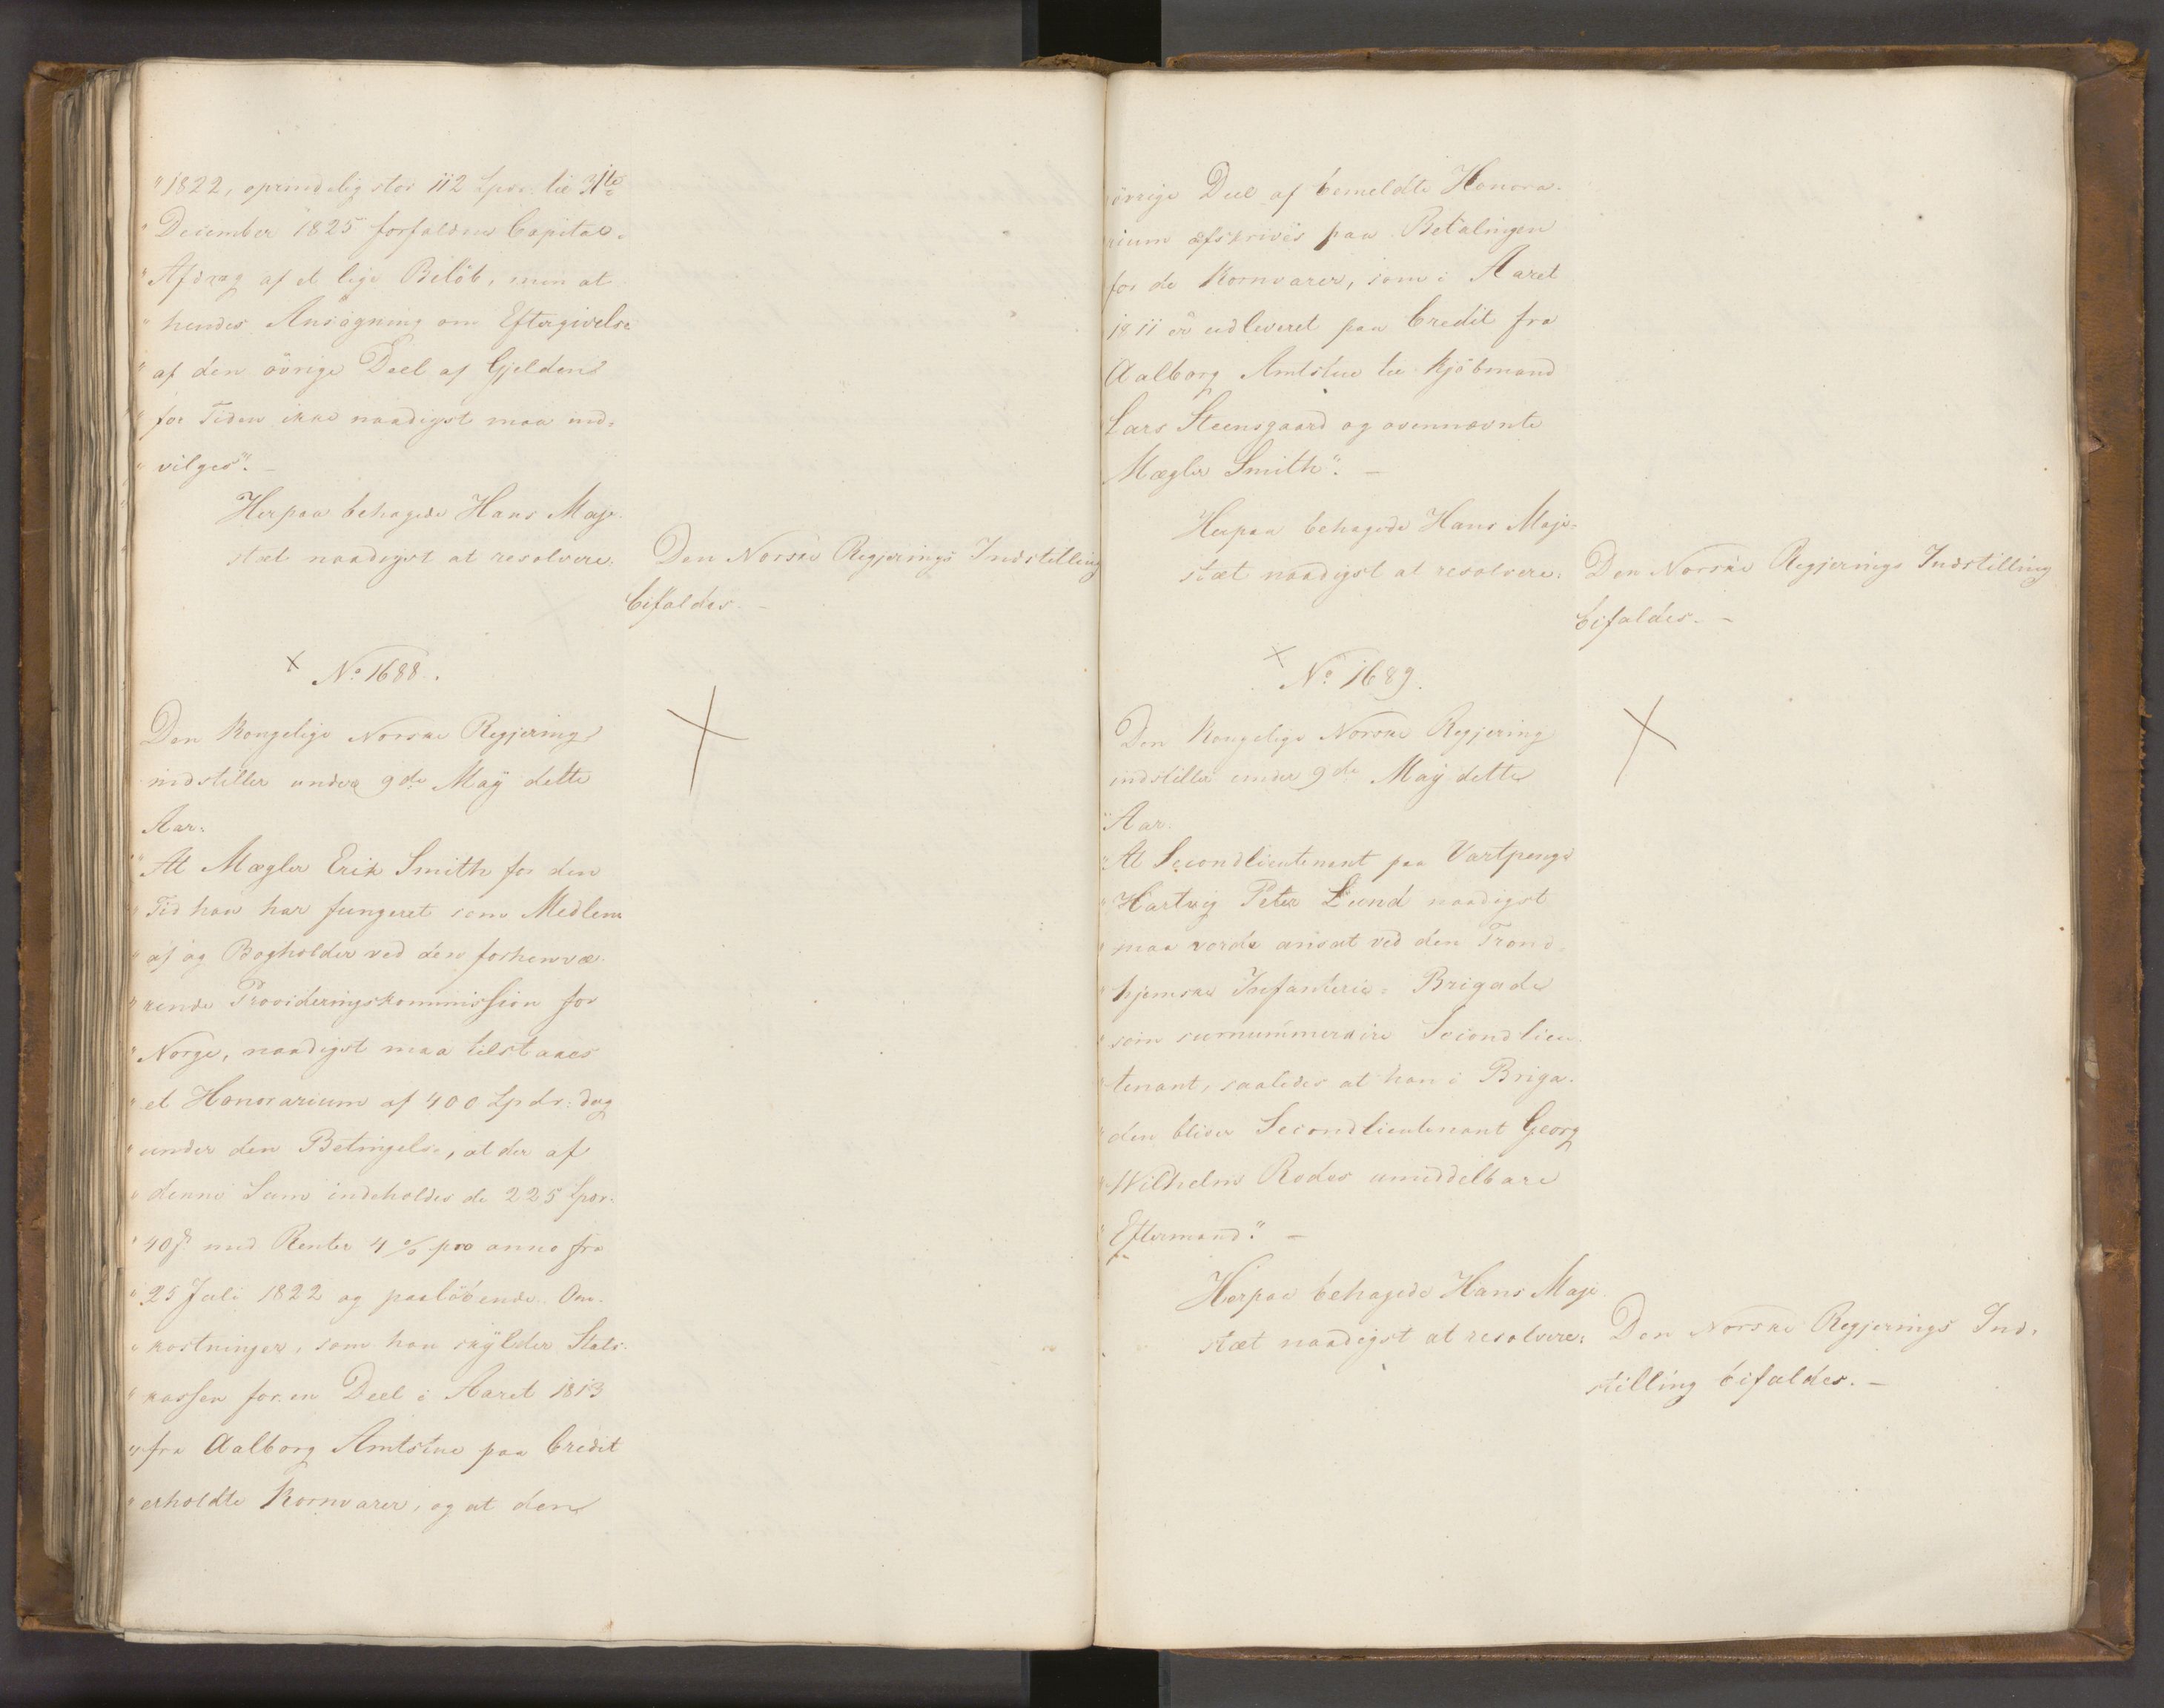 "1822, oprindelig stor 112 Spdr. til 31te
" December 1825 forfalden Capital-
" Afdrag af et lige Beløb, men at
" hendes Ansøgning om Eftergivelse
" af den øvrige Deel af Gjelden
" for Tiden ikke naadigst maa ind-
" vilges". –
Herpaa behagede Hans Maje-
stæt naadigst at resolvere:
Den Norske Regjerings Indstilling
bifaldes. –
× No 1688.
Den Kongelige Norske Regjering
indstiller under 9de May dette
Aar:
"At Mægler Erik Smith for den
" Tid han har fungeret som Medlem
" af og Bogholder ved den forhenvæ-
" rende Provideringskommission for
" Norge, naadigst maa tilstaaes
" et Honorarium af 400 Spdr. dog
" under den Betingelse, at der af
" denne Sum indeholdes de 225 Spdr.
" 40 ß med Renter 4 % pro anno fra
" 25 Juli 1822 og paaløbende Om-
" kostninger, som han skylder Stats-
" kassen for en Deel i Aaret 1813
" fra Aalborg Amtstue paa Credit
" erholdte Kornvarer, og at den
øvrige Deel af bemeldte Honora-
rium afskrives paa Betalingen
for de Kornvarer, som i Aaret
1811 er udleveret paa Credit fra
Aalborg Amtstue til Kjøbmand
Lars Steensgaard og ovennævnte
Mægler Smith". –
Herpaa behagede Hans Maje-
stæt naadigst at resolvere:
Den Norske Regjerings Indstilling
bifaldes. –
× No 1689.
Den Kongelige Norske Regjering
indstiller under 9de May dette
Aar.
"At Secondlieutenant paa Vartpenge
" Hartvig Peter Lund naadigst
" maa vorde ansat ved den Trond-
" hjemske Infanterie-Brigade
" som surnummeraire Secondlieu-
" tenant, saaledes at han i Briga-
" den bliver Secondlieutenant Georg
" Wilhelm Rodes umiddelbare
" Eftermand". –
Herpaa behagede Hans Maje-
stæt naadigst at resolvere:
Den Norske Regjerings Ind-
stilling bifaldes. –